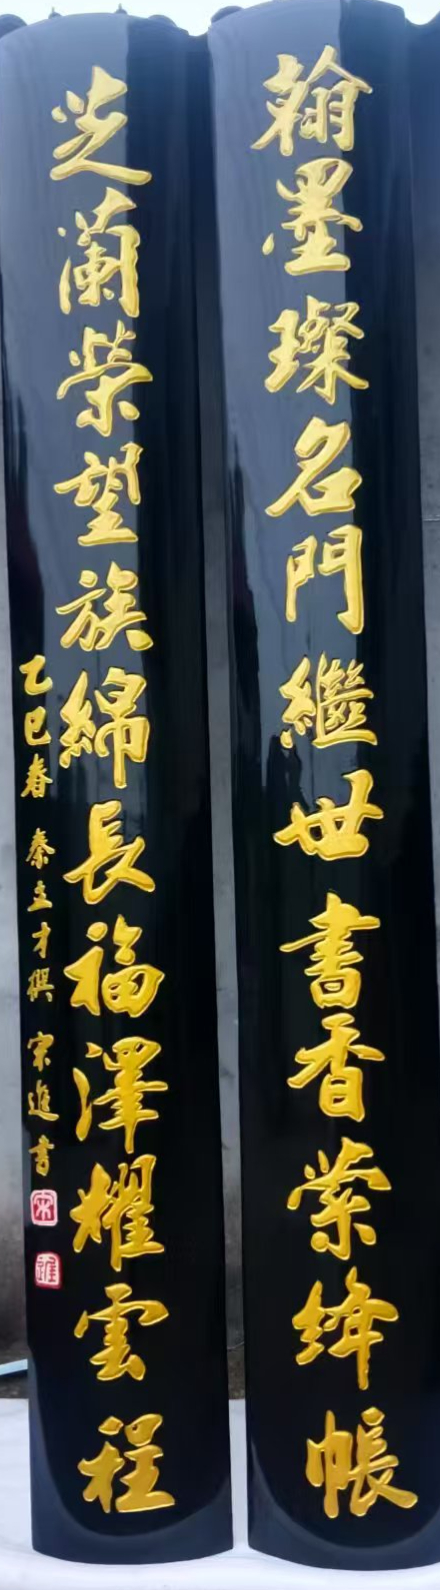 翰墨璨名門繼世書香縈絳帳
芝蘭榮望族綿長福澤耀雲程
乙巳春 秦立才撰 宋進書
宋
進